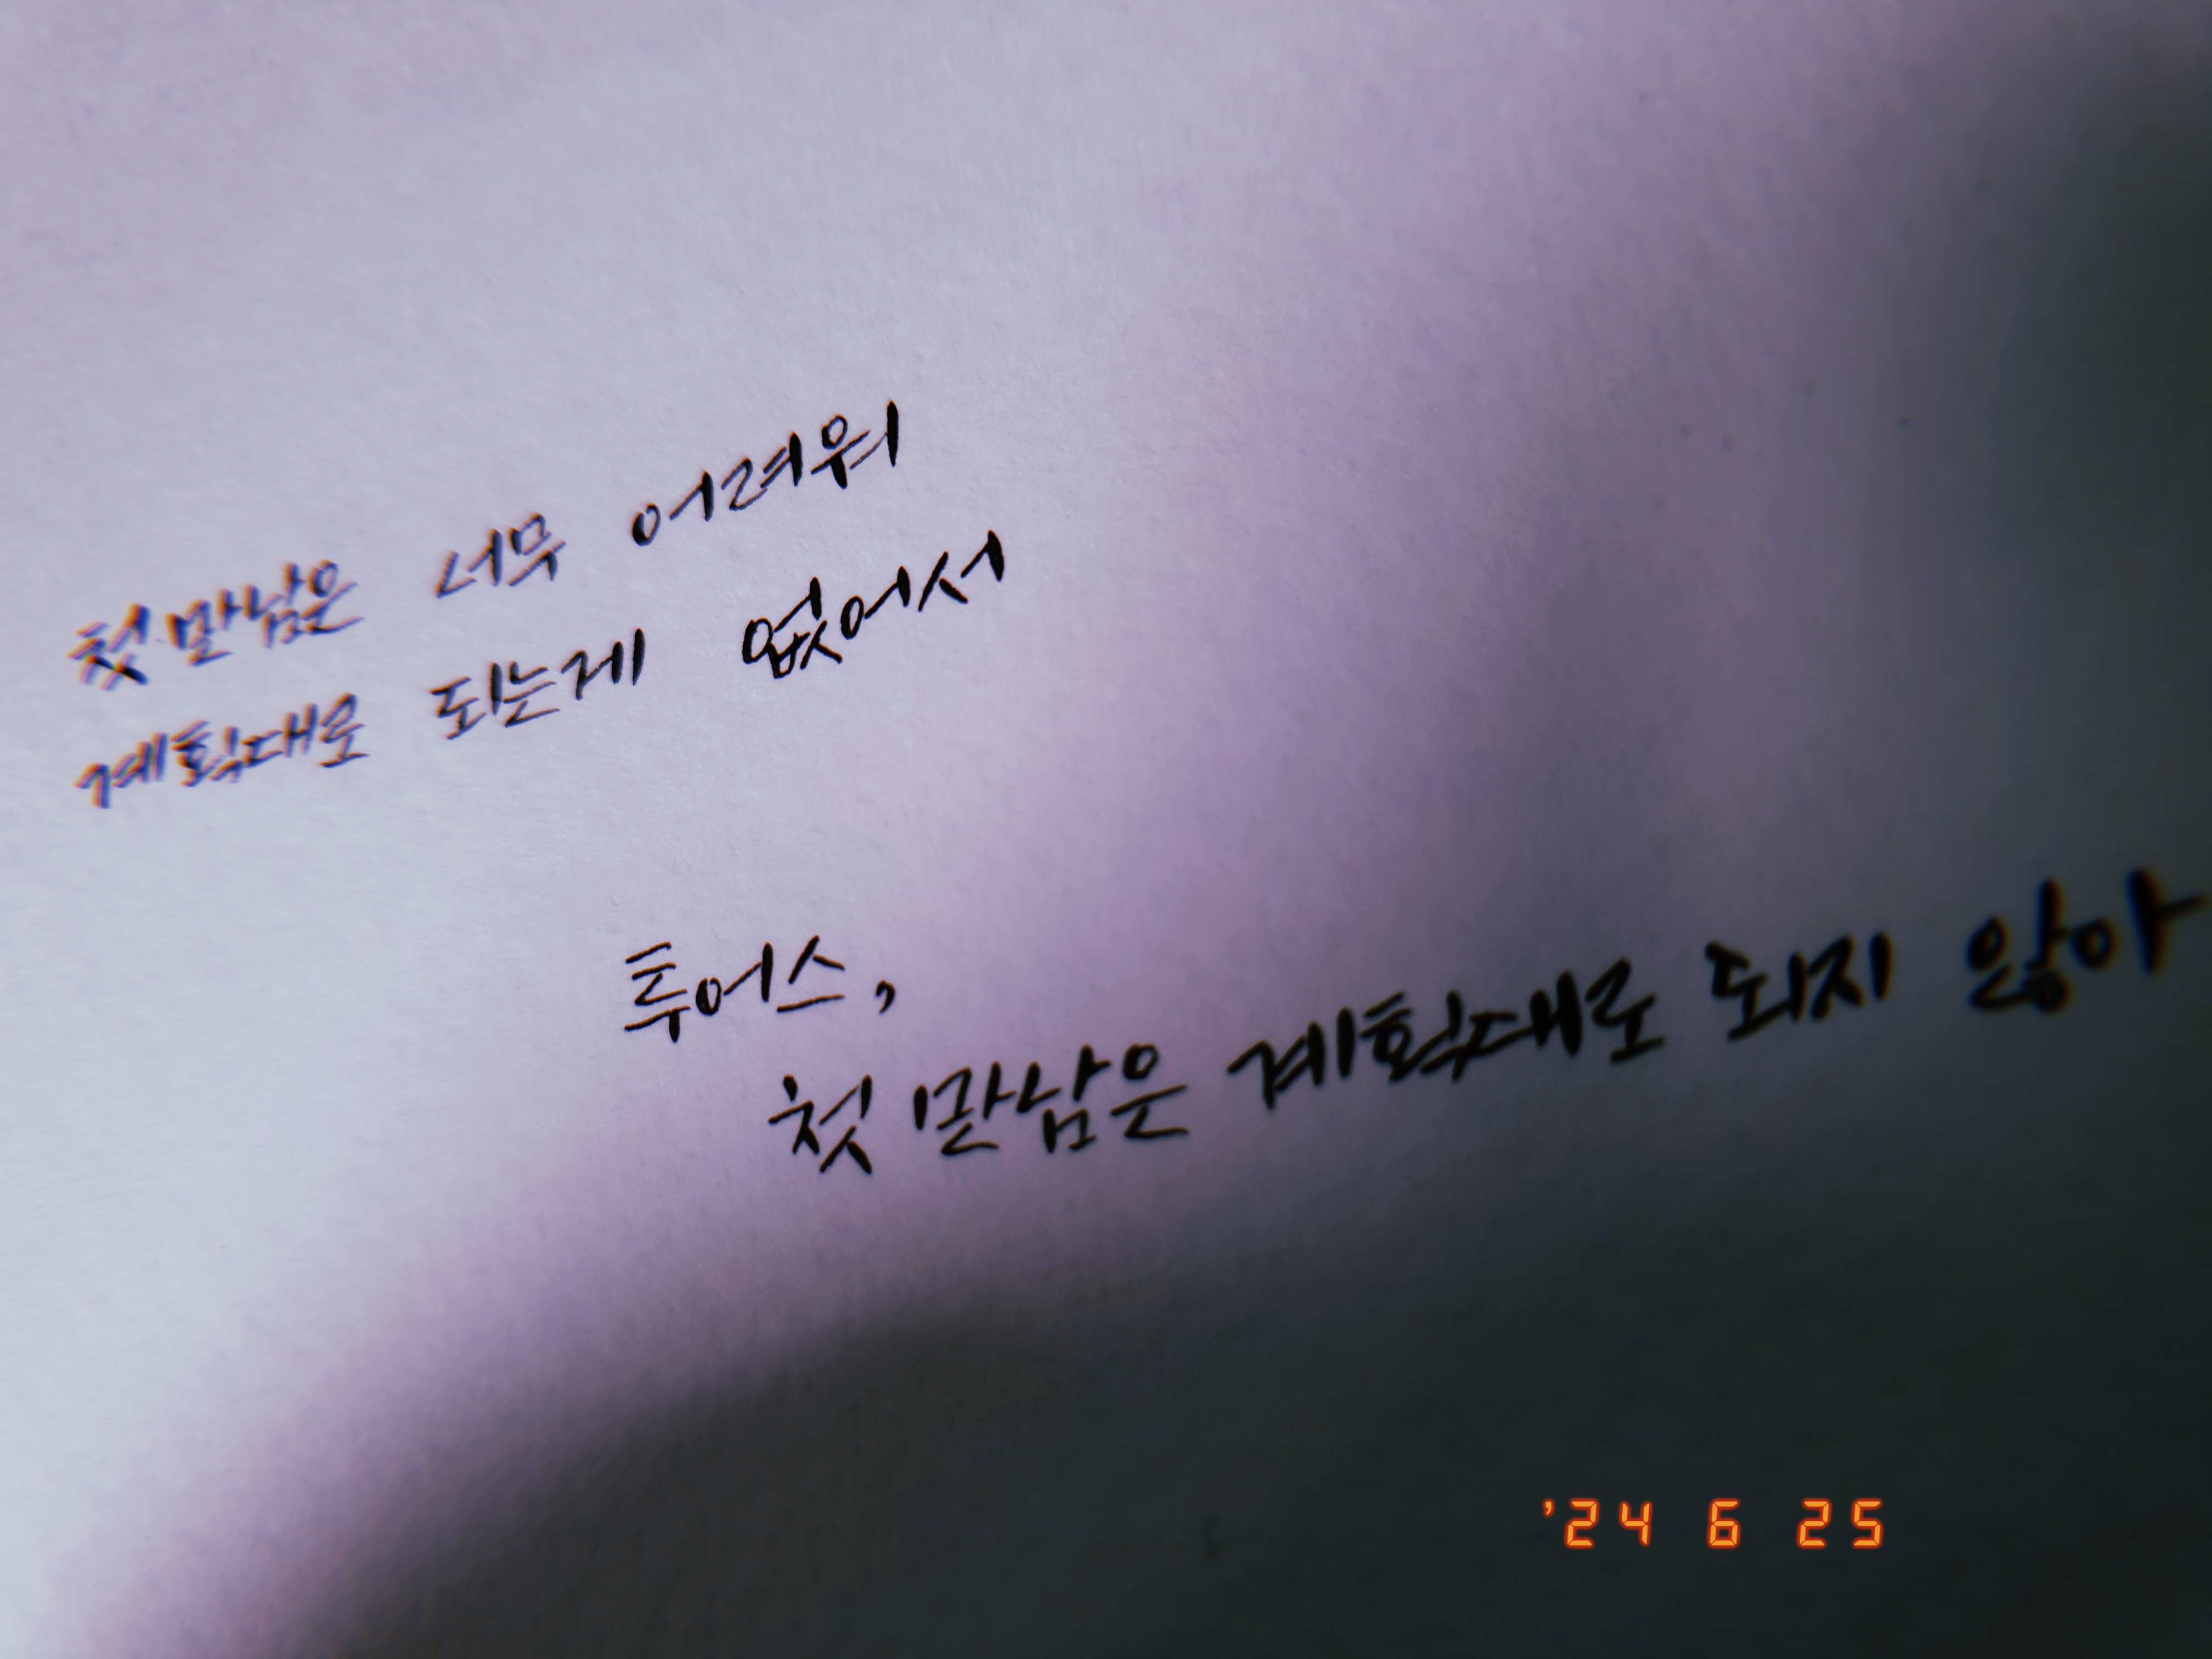 첫만남은 너무 어려워
계획대로 되는게 없어서
투어스,
첫 만남은 계획대로 되지 않아
'24 6 25